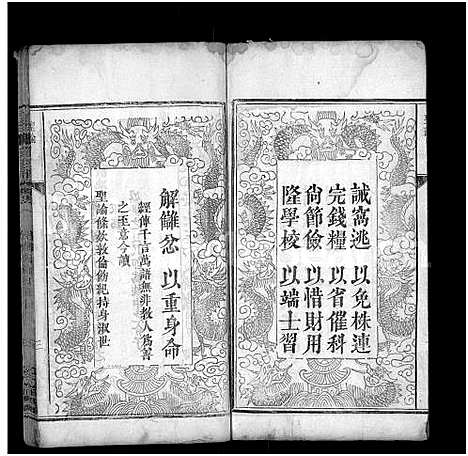 誡窩逃 以免株連
完錢糧 以省催科
尙節儉 以惜財用
隆學校 以端士習
解讎忿 以重身命
經傳千言萬語無非敎人爲善
之至意今讀
聖諭條欵敦倫飭紀持身淑世